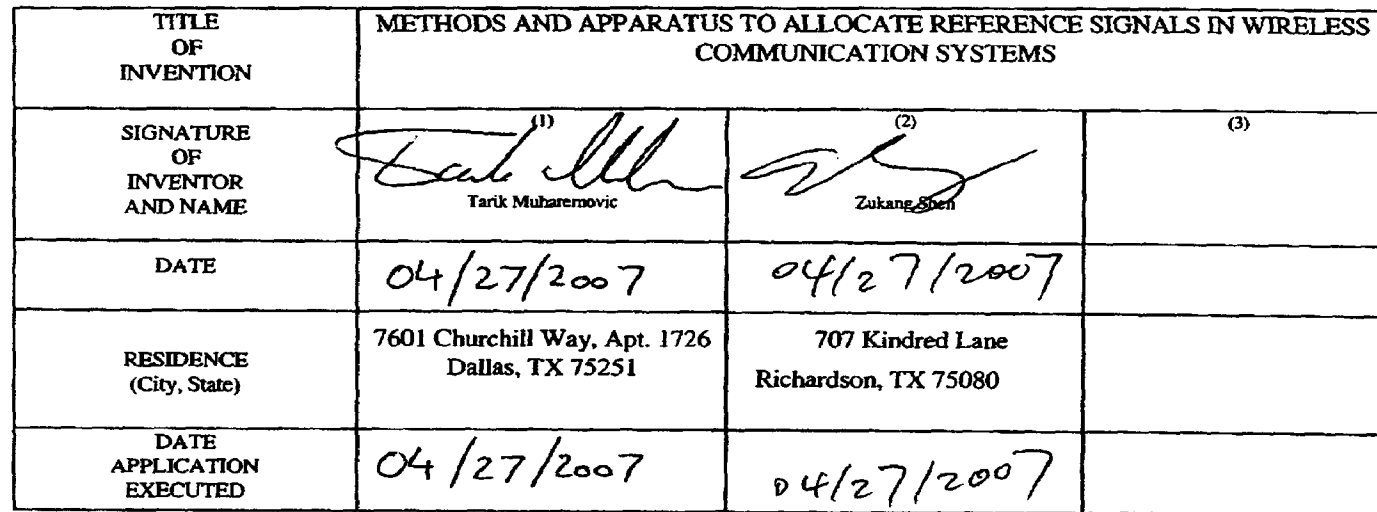 TITLE
OF
INVENTION
METHODS AND APPARATUS TO ALLOCATE REFERENCE SIGNALS IN WIRELESS
COMMUNICATION SYSTEMS
SIGNATURE
OF
INVENTOR
AND NAME
(1)
Tarik Muharemovic
(2)
Zukang Shen
(3)
DATE
04/27/2007
04/27/2007
RESIDENCE
(City, State)
7601 Churchill Way, Apt. 1726
Dallas, TX 75251
707 Kindred Lane
Richardson, TX 75080
DATE
APPLICATION
EXECUTED
04/27/2007
04/27/2007